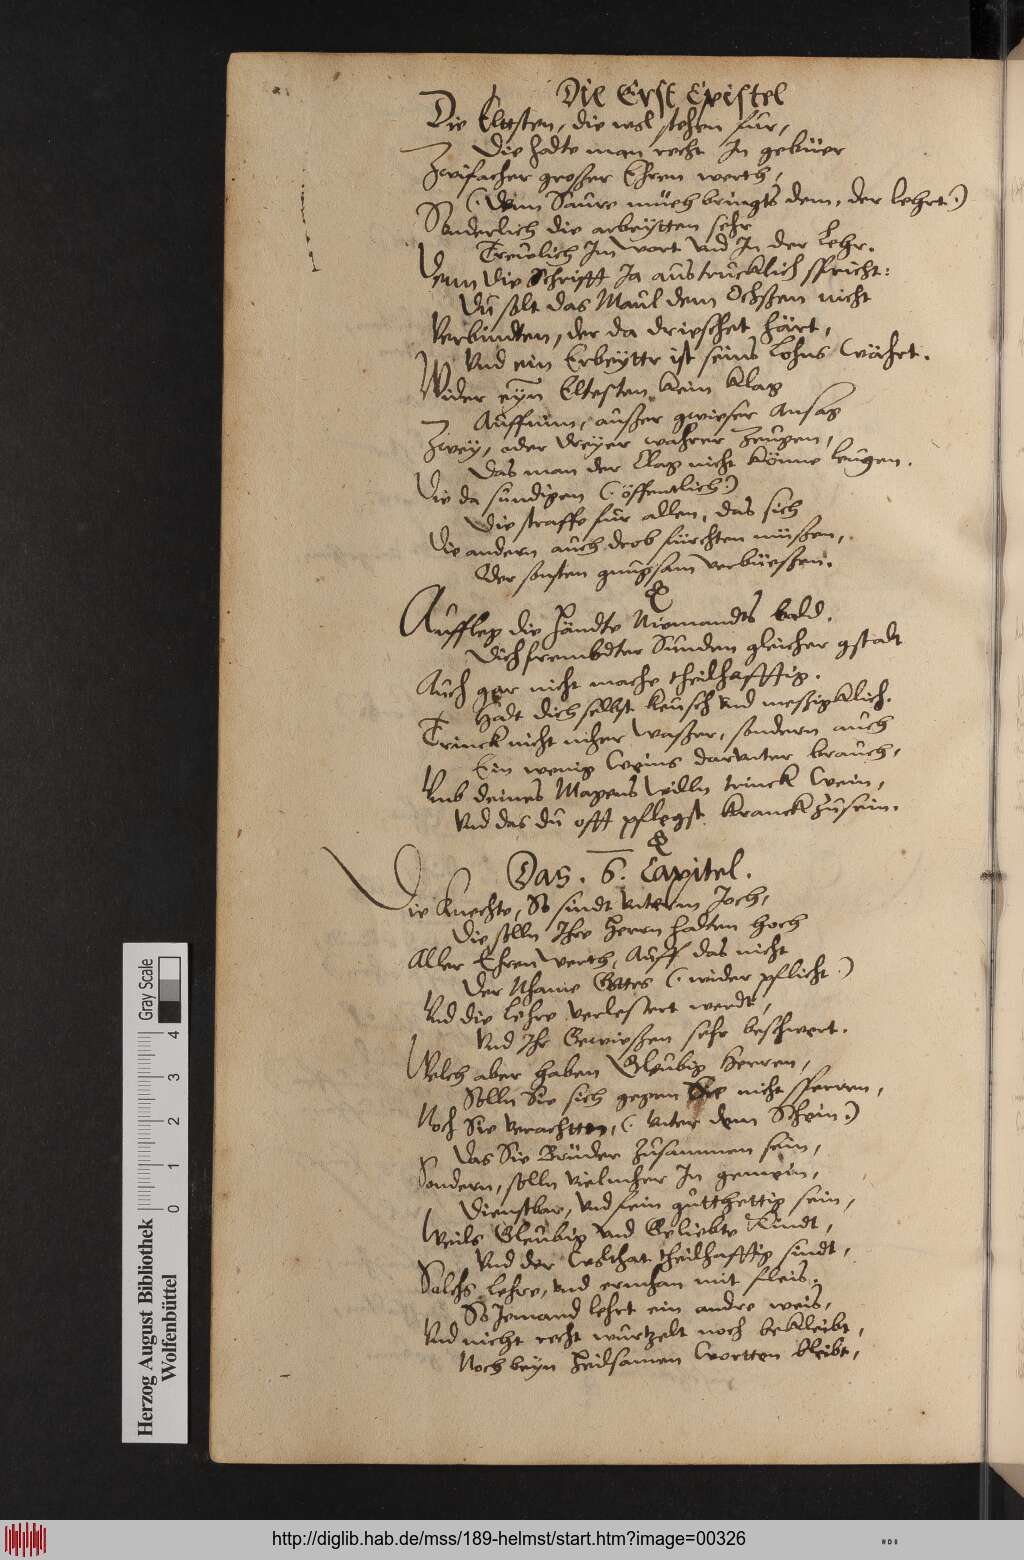 Die Erst Epistel
Die Elttsten, die wol stehen für,
Die halte man recht In gebüer
Zwifacher grosser Ehren werth,
(: Denn Saure müeh bringts dem, der lehrt :)
Sonderlich die arbeytten sehr
Treulich Im wort Vnd In der Lehr.
Denn die Schrifft Ja austrucklich spricht:
Du solt das Maul dem Ochssen nicht
Verbindten, der da drieschet härt,
Vnd ein Erbeytter ist seins Lohns währt.
Wider eyn Eltesten kein klag
Auffnim, ausser gwieser Ansag
Zwey, oder dreyer wahrer Zeugen,
Das man der Clag nicht könne leugen.
Die da sündigen (: öffentlich :)
Die straffe für allen, das sich
Die andern auch drob fürchten müssen,
Der sonsten gnugsam verbüessen.
Auffleg die Händte Niemandts bald.
Dich frembdter Sünden gleicher gstadt
Auch gar nicht mache theilhafftig.
Hadt dich selbst keusch vnd messigklich.
Trinck nicht mher Wasser, sondern auch
Ein wenig Weins darunter brauch,
Vmb deines Magens Willn trinck Wein,
Vnd das du offt pflegst kranck zusein.
Das. 6. Capitel.
Die Knechte, So sindt vnterm Joch,
Die solln Ihre Herrn halten hoch
Aller Ehren Werth, Auff das nicht
Der Nhame Gottes (: wider pflicht :)
Vnd die Lehre verlestert werdt,
Vnd Ihr Gewiessen sehr beschwert.
Welch aber haben Gleubig Herren,
Solln Sie sich gegen nicht sperren,
Noch Sie verachtten, (: vnter dem Schein :)
Das Sie Brüder zusammen sein,
Sondern, solln vielmher In gemein,
Dienstbar, Vnd fein gutthettig sein,
Weils Gleubig Vnd Geliebte Kindt,
Vnd der Wolthat theilhafftig sindt,
Solchs Lehre, vnd ermhan mit fleis.
So Jemand lehrt ein andre weis,
Vnd nicht recht wurtzelt noch bekleibt,
Noch beyn Heidsamen Wortten bleibt,
Herzog August Bibliothek
Wolfenbüttel
0 1 2 3 4
Gray Scale
http://diglib.hab.de/mss/189-helmst/start.htm?image=00326